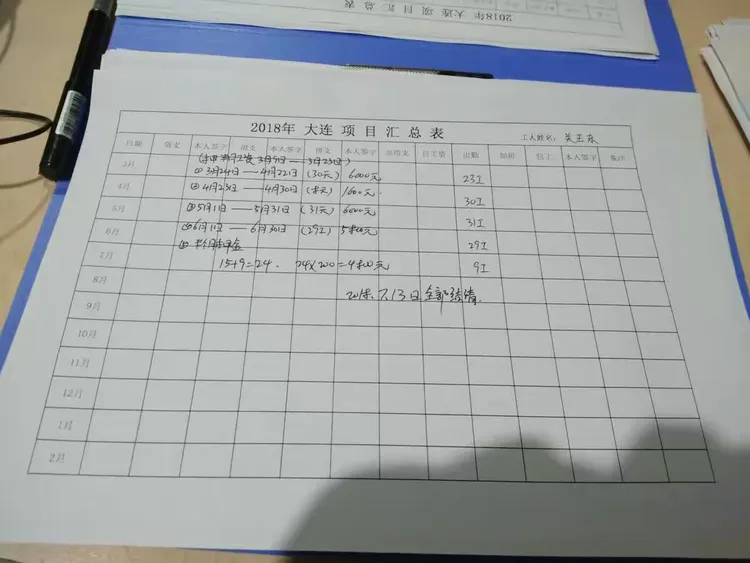 2018年 大连 项目汇总表
2018年 大连 项目汇总表
工人姓名: 关玉东
日期 借支 本人签字 借支 本人签字 借支 本人签字 总借支 日工资 出勤 加班 包工 本人签字 备注
3月 3月9日——3月23日) 23工
① 3月24日——4月22日 (30天) 6000元
4月 ② 4月23日——4月30日 (8天) 1600元 30工
5月 ③ 5月1日——5月31日 (31天) 6000元 31工
6月 ④ 6月1日——6月30日 (29工) 5800元 29工
7月 9工
15+9=24. 24×200=4800元
8月
2018. 7.13日全部结清.
9月
10月
11月
12月
1月
2月